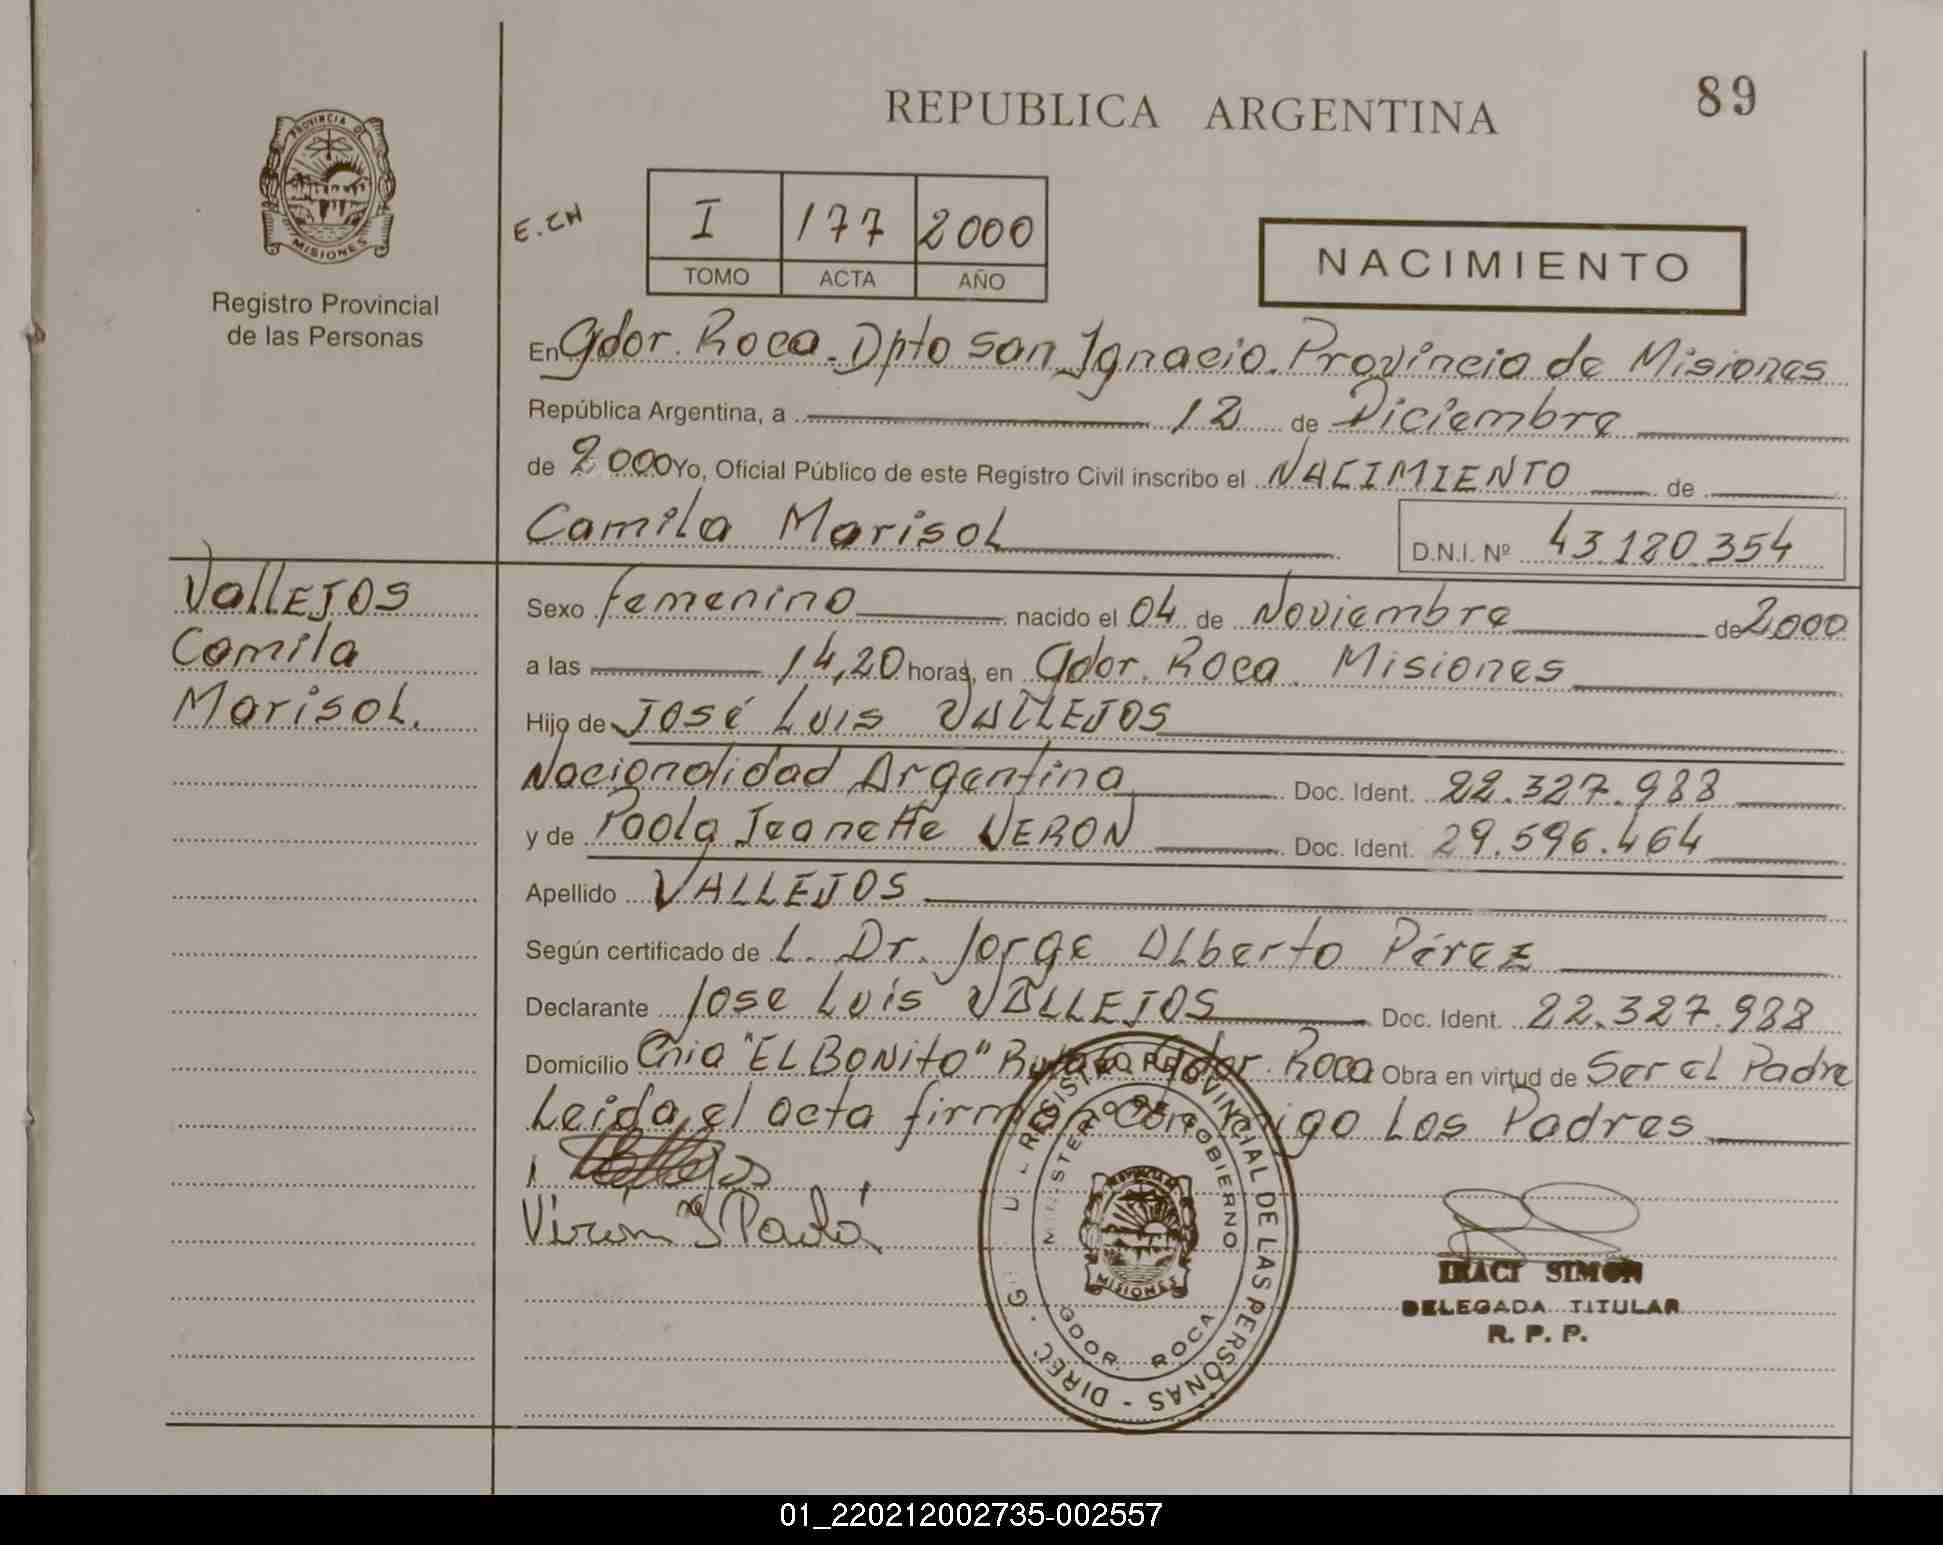 89
REPUBLICA ARGENTINA
PROVINCIA DE
MISIONES
Registro Provincial
de las Personas
E. CH
I 177 2000
TOMO ACTA AÑO
NACIMIENTO
En Gdor. Roca. Dpto San Ignacio. Provincia de Misiones
República Argentina, a 12 de Diciembre
de 2000 Yo, Oficial Público de este Registro Civil inscribo el NACIMIENTO de
Camila Marisol D.N.I. Nº 43.180.354
Vallejos
Camila
Marisol.
Sexo femenino nacido el 04 de Noviembre de 2000
a las 14,20 horas, en Gdor. Roca. Misiones
Hijo de José Luis VALLEJOS
Nacionalidad Argentina Doc. Ident. 22.327.988
y de Paola Jeanette VERON Doc. Ident. 29.596.464
Apellido VALLEJOS
Según certificado de L. Dr. Jorge Alberto Pérez
Declarante Jose Luis VALLEJOS Doc. Ident. 22.327.988
Domicilio Cnia "EL BONITO" Gdor. Roca Obra en virtud de Ser el Padre
Leida el acta firman conmigo Los Padres
REGISTRO PROVINCIAL DE LAS PERSONAS - DIREC. G
MINISTERIO DE GOBIERNO
PROVINCIA DE
MISIONES
GDOR. ROCA
IRACI SIMON
DELEGADA TITULAR
R. P. P.
01_220212002735-002557